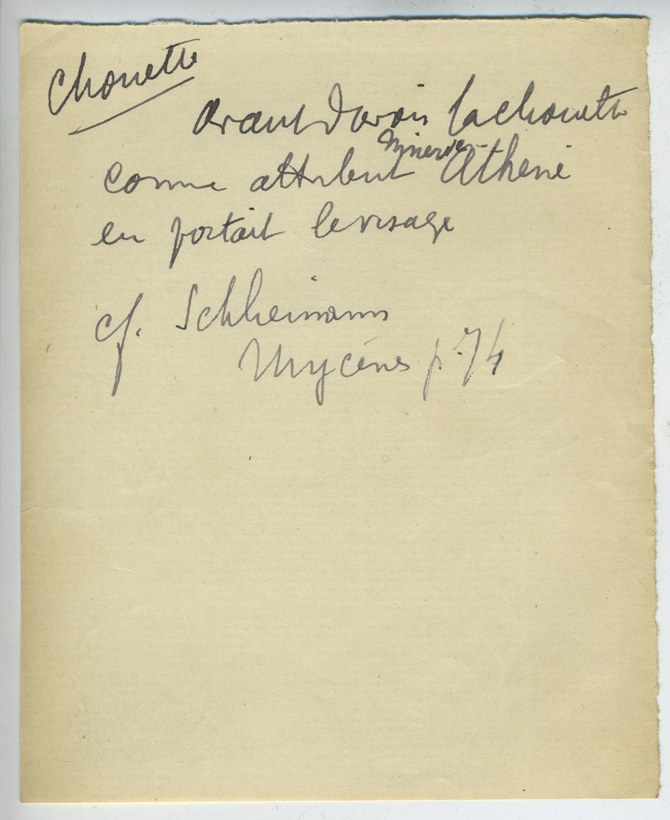 Chouette
Avant d'avoir la chouette
Minerve
comme attribut Athéné
en portait le visage
cf. Schliemann
Mycènes p. 74